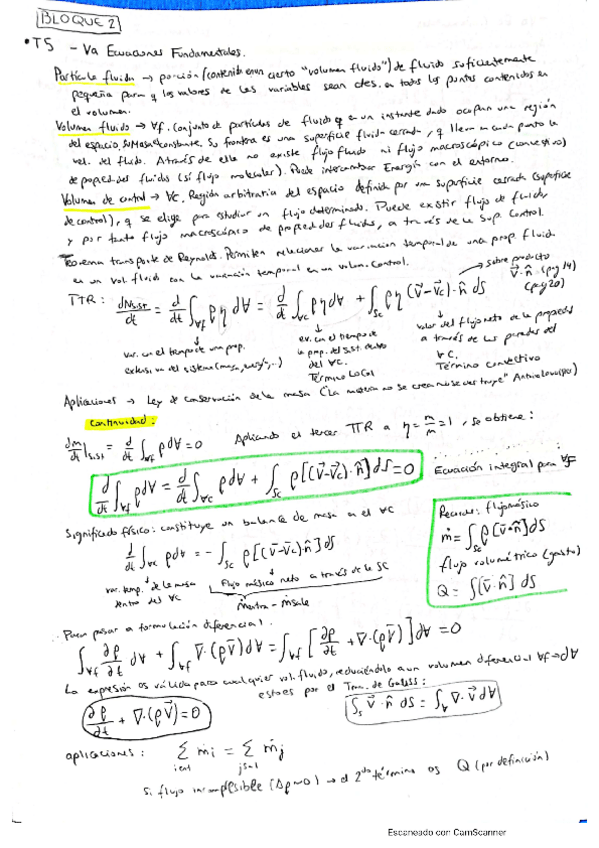 BLOQUE 2
• T5 - Va Ecuaciones Fundamentales.
Partícula fluida → porción (contenida en un cierto "volumen fluido") de fluido suficientemente
pequeña para q los valores de las variables sean ctes. en todos los puntos contenidos en
el volumen.
Volumen fluido → ∀f. Conjunto de partículas de fluido q en un instante dado ocupan una región
del espacio. Su Masa es constante. Su frontera es una superficie fluida cerrada, q lleva en cada punto la
vel. del fluido. A través de ella no existe flujo fluido ni flujo macroscópico (convectivo)
de proped. del fluido (sí flujo molecular). Puede intercambiar Energía con el entorno.
Volumen de control → ∀c. Región arbitraria del espacio definida por una superficie cerrada (superficie
de control), q se elige para estudiar un flujo determinado. Puede existir flujo de fluido,
y por tanto flujo macroscópico de propiedades fluidas, a través de la Sup. Control.
Teorema transporte de Reynolds. Permiten relacionar la variación temporal de una prop. fluida
en un vol. fluido con la variación temporal en un volum. Control.
→ sobre producto
V⃗·n̂ (pag 14)
(pag 20)
TTR: dNsist/dt = d/dt ∫∀f ρη d∀ = d/dt ∫∀c ρη d∀ + ∫Sc ρη (V⃗-V⃗c)·n̂ dS
var. en el tiempo de una prop.
extensiva del sistema (masa, energía,...)
ev. en el tiempo de
la prop. del sist. dentro
del ∀C.
Término Local
valor del flujo neto de la propiedad
a través de las paredes del
∀C.
Término convectivo
Aplicaciones → Ley de conservación de la masa ("La materia no se crea ni se destruye"
Continuidad:
dm/dt|sist = d/dt ∫∀f ρd∀ = 0 Aplicando el tercer TTR a η = m/m = 1, se obtiene:
d/dt ∫∀f ρd∀ = d/dt ∫∀c ρd∀ + ∫Sc ρ[(V⃗-V⃗c)·n̂]dS = 0
Ecuación integral para ∀f
Significado físico: constituye un balance de masa en el ∀C
d/dt ∫∀c ρd∀ = - ∫Sc ρ[(V⃗-V⃗c)·n̂]dS
var. temp. de la masa
dentro del ∀C
Flujo másico neto a través de la SC
ṁentra - ṁsale
Recordar: flujo másico
ṁ = ∫Sc ρ(V⃗·n̂)dS
flujo volumétrico (gasto)
Q = ∫[V⃗·n̂] dS
Para pasar a formulación diferencial.
∫∀f ∂ρ/∂t d∀ + ∫∀f ∇·(ρV⃗)d∀ = ∫∀f [∂ρ/∂t + ∇·(ρV⃗)]d∀ = 0
La expresión es válida para cualquier vol. fluido, reduciéndolo a un volumen diferencial ∀f→d∀
esto es por el Tma. de Gauss:
∂ρ/∂t + ∇·(ρV⃗) = 0
∫S V⃗·n̂ dS = ∫∀ ∇·V⃗ d∀
aplicaciones: Σ i=1 ṁi = Σ j=1 ṁj
Si flujo incompresible (Δρ≈0) → el 2do término es Q (por definición)
Escaneado con CamScanner